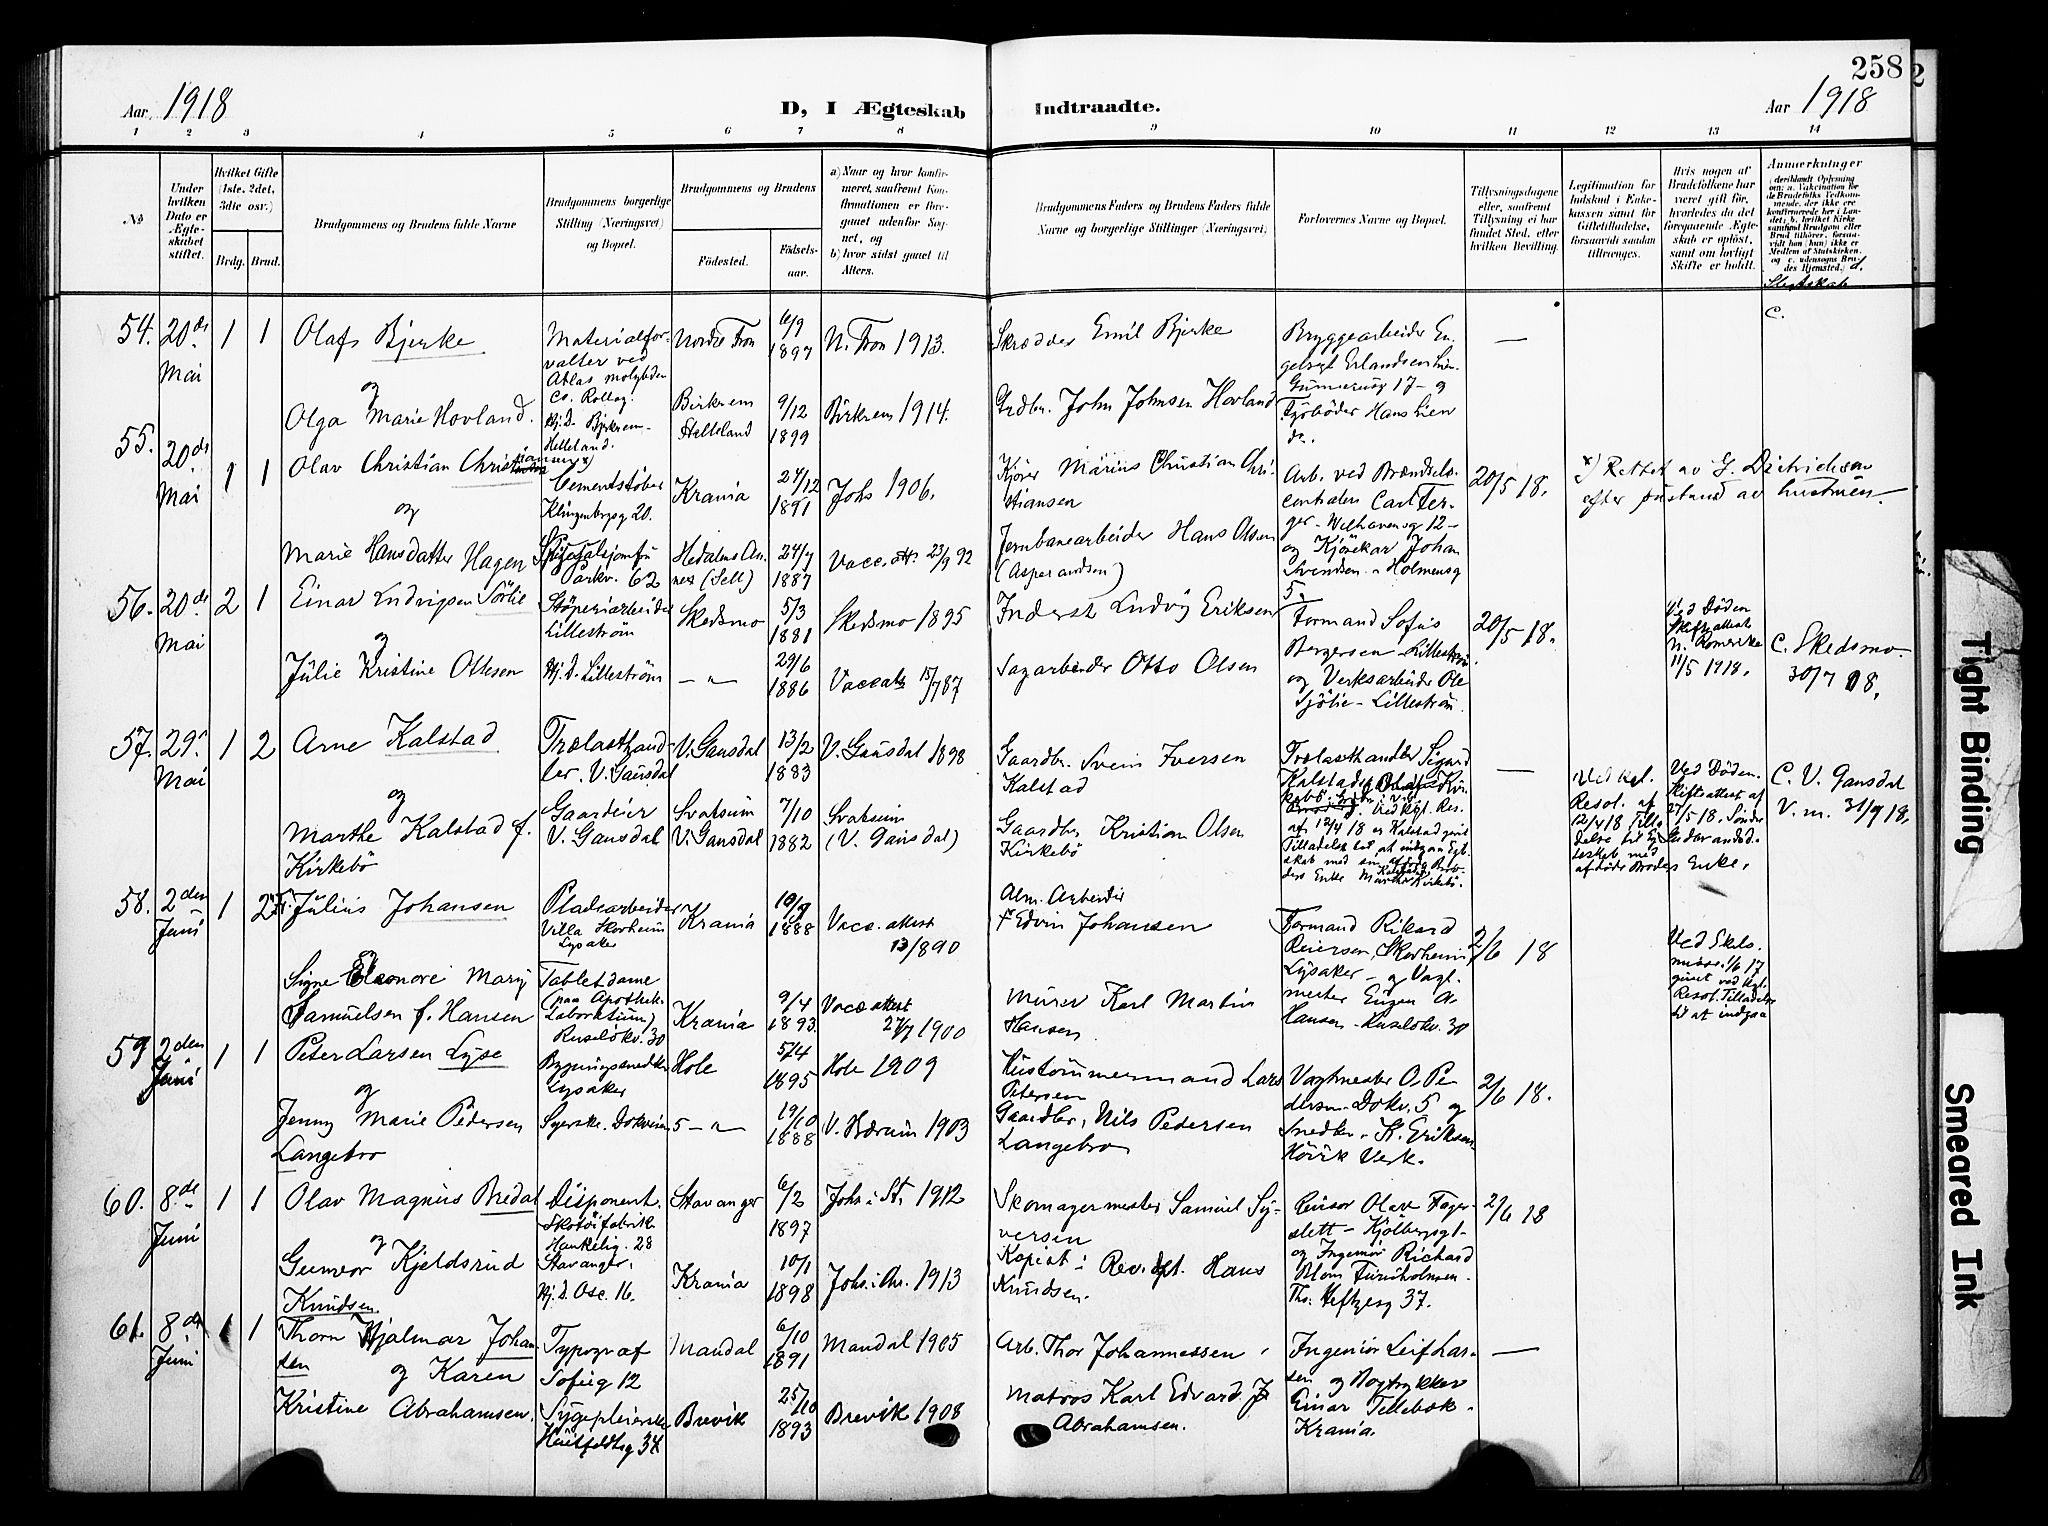 258
Aar 1918
D, I Ægteskab Indtraadte.
Aar 1918
1 2 3 4 5 6 7 8 9 10 11 12 13 14
No
Under hvilken Dato er Ægteskabet stiftet.
Hvilket Gifte (1ste, 2det, 3die osv.).
Brdg. Brud.
Brudgommens og Brudens fulde Navne
Brudgommens borgerlige Stilling (Næringsvei) og Bopæl.
Brudgommens og Brudens
Fødested.
Fødselsaar.
a) Naar og hvor konfirmeret, saafremt Konfirmationen er foregaaet udenfor Sognet, og
b) hvor sidst gaaet til Alters.
Brudgommens Faders og Brudens Faders fulde Navne og borgerlige Stillinger (Næringsvei)
Forlovernes Navne og Bopæl.
Tillysningsdagene eller, saafremt Tillysning ei har fundet Sted, efter hvilken Bevilling.
Legitimation for Indskud i Enkekassen samt for Giftetilladelse, forsaavidt saadan tiltrænges.
Hvis nogen af Brudefolkene har været gift før, hvorledes da det foregaaende Ægteskab er opløst, samt om lovligt Skifte er holdt.
Anmerkninger
d. Slegtskab
54. 20de Mai 1 1
Olaf Bjerke
og
Olga Marie Hovland.
Materialforvalter ved Atlas molybden Co. Rollag.
Hj.d. Bjerkrem-Helleland.
Nordre Fron 6/9 1897 N. Fron 1913.
Birkrem Helleland 9/12 1899 Birkrem 1914.
Skrædder Emil Bjerke
Grdbr. John Johnsen Hovland
Bryggearbeider Engebregt Erlandsen Lien. Gunnerusg 17 - og Fyrbøder Hans Lien do.
—
C.
55. 20de Mai 1 1
Olav Christian Christiansen x)
og
Marie Hansdatter Hagen
Cementstøber Klingenbergsg 20.
Parkv. 62
Krania 24/12 1891 Johs 1906.
Hedalens Annex (Sell) 24/7 1887 Vacc.att. 23/9 92
Kjører Marius Christian Christiansen
Jernbanearbeider Hans Olsen (Asperandsen)
Arb. ved Brændselscentralen Carl Berger - Welhavensg 12 - og Kjørekar Johan Svendsen - Holmensg 5.
20/5 18.
x) Rettet av G. Dietrichson efter paastand av hustruen.
56. 20de Mai 2 1
Einar Ludvigsen Sørlie
og
Julie Kristine Ottesen
Støperiarbeider Lillestrøm
Hj.d. Lillestrøm
Skedsmo 5/3 1881 Skedsmo 1895
— " — 29/6 1886 Vaccatt 15/7 87
Inderst Ludvig Eriksen
Sagarbeider Otto Olsen
Formand Sofus Bergersen - Lillestrøm og Verksarbeider Ole Sjølie - Lillestrøm.
20/5 18.
Ved Døden Skifteattest N. Romerike 11/5 1918.
C. Skedsmo 30/7 18.
57. 29' Mai 1 2
Arne Kalstad
og
Marthe Kalstad f. Kirkebø
Trælasthandler. V. Gausdal
Gaardeier V. Gausdal
V. Gausdal 13/2 1883 V. Gausdal 1898
Svatsum V. Gausdal 7/10 1882 Svatsum (V. Gausdal)
Gaardbr. Svein Iversen Kalstad
Gaardbr Kristian Olsen Kirkebø
Trælasthandler Sigurd Kalstad
Ved Kgl. Res. af 12/4 18 er Kalstad givet Tilladelse til at indgaa Egteskab med sin afdøde Broders Enke Marthe Kalstad f. Kirkebø.
—
Ved Kgl. Resol. af 12/4 18 Tilladelse til Egteskab med afdøde Broders Enke.
Ved Døden. Skifteattest af 27/5 18. Søndre Gudbrandsd.
C. V. Gausdal V. m. 31/9 18.
58. 2den Juni 1 2
Julius Johansen
Signe Eleonore Marij Samuelsen f. Hansen
Pladearbeider Villa Skorheim Lysaker
Tabletdame (paa Apothek-Laboratium) Ruseløkv. 30
Krania 1888 Vacc.attest 13/ 890
Krania 9/4 1893 Vaccattest 27/7 1900
Alm. Arbeider Edvin Johansen
Murer Karl Martin Hansen
Formand Rikard Reiersen, Skorheim, Lysaker - og Vagtmester Eugen A. Hansen - Ruseløkv. 30
2/6 18
Ved Skilsmisse. 1/6 17 givet ved Kgl. Resol. Tilladelse til at indgaa
59 2den Juni 1 1
Peter Larsen Lyse
og
Jenny Marie Pedersen Langebro
Bygningssnedker Lysaker
Syerske. Dokveien 5
Hole 5/4 1895 Hole 1909
— " — 19/10 1888 V. Bærum 1903
Hustømmermand Lars Petersen
Gaardbr. Nils Pedersen Langebro
Vagtmester O. Pedersen Dokv. 5 og Snedker K. Eriksen Høvik Verk.
2/6 18.
60. 8de Juni 1 1
Olav Magnus Bredal
og
Gunvor Kjeldsrud Knudsen.
Disponent. Skotøifabrik Haukelig. 28 Stavanger.
Hj.d. Osc. 16.
Stavanger 6/2 1897 Johs i St. 1912
Krania 10/1 1898 Johs i Kr. 1913
Skomagermester Samuel Syversen
Kopist i Rev.dpt. Hans Knudsen.
Revisor Olav Fagerslett - Kjølbergsgt - og Ingeniør Richard Blom Furuholmen. Ths. Heftyesg 37.
2/6 18
61. 8de Juni 1 1
Thorn Hjalmar Johansen
og Karen Kristine Abrahamsen.
Typograf Sofieg 12
Sygepleierske Huitfeldtsg 34
Mandal 6/10 1891 Mandal 1905
Brevik 25/10 1893 Brevik 1908
Arb. Thor Johannessen
Matros Karl Edvard Abrahamsen.
Ingeniør Leif Larsen og Bogtrykker Einar Tellebæk - Krania.
—
Tight Binding
Smeared Ink